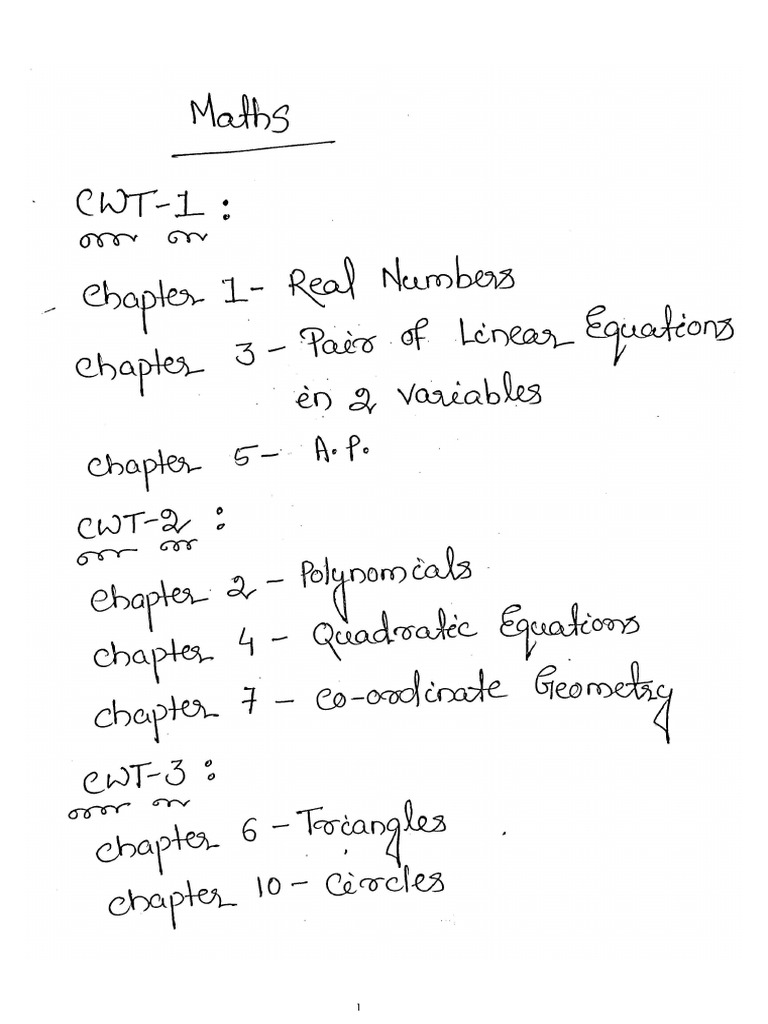 Maths
CWT-1 :
Chapter 1 - Real Numbers
Chapter 3 - Pair of Linear Equations
in 2 variables
Chapter 5 - A.P.
CWT-2 :
Chapter 2 - Polynomials
Chapter 4 - Quadratic Equations
Chapter 7 - Co-ordinate Geometry
CWT-3 :
Chapter 6 - Triangles
Chapter 10 - Circles
1